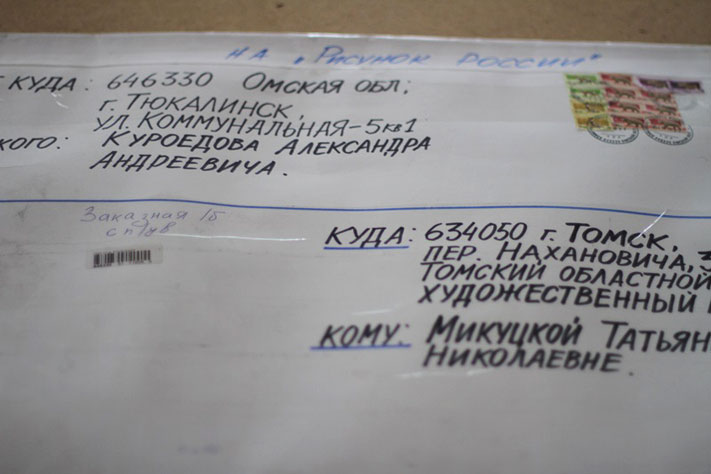 НА „Рисунок России"
КУДА: 646330 Омская обл;
г. Тюкалинск,
ул. Коммунальная-5кв1
КОГО: Куроедова Александра
Андреевича.
Заказная 1б
КУДА: 634050 г. Томск,
пер. Нахановича, 3
Томский областной
художественный
КОМУ: Микуцкой Татьян
Николаевне.